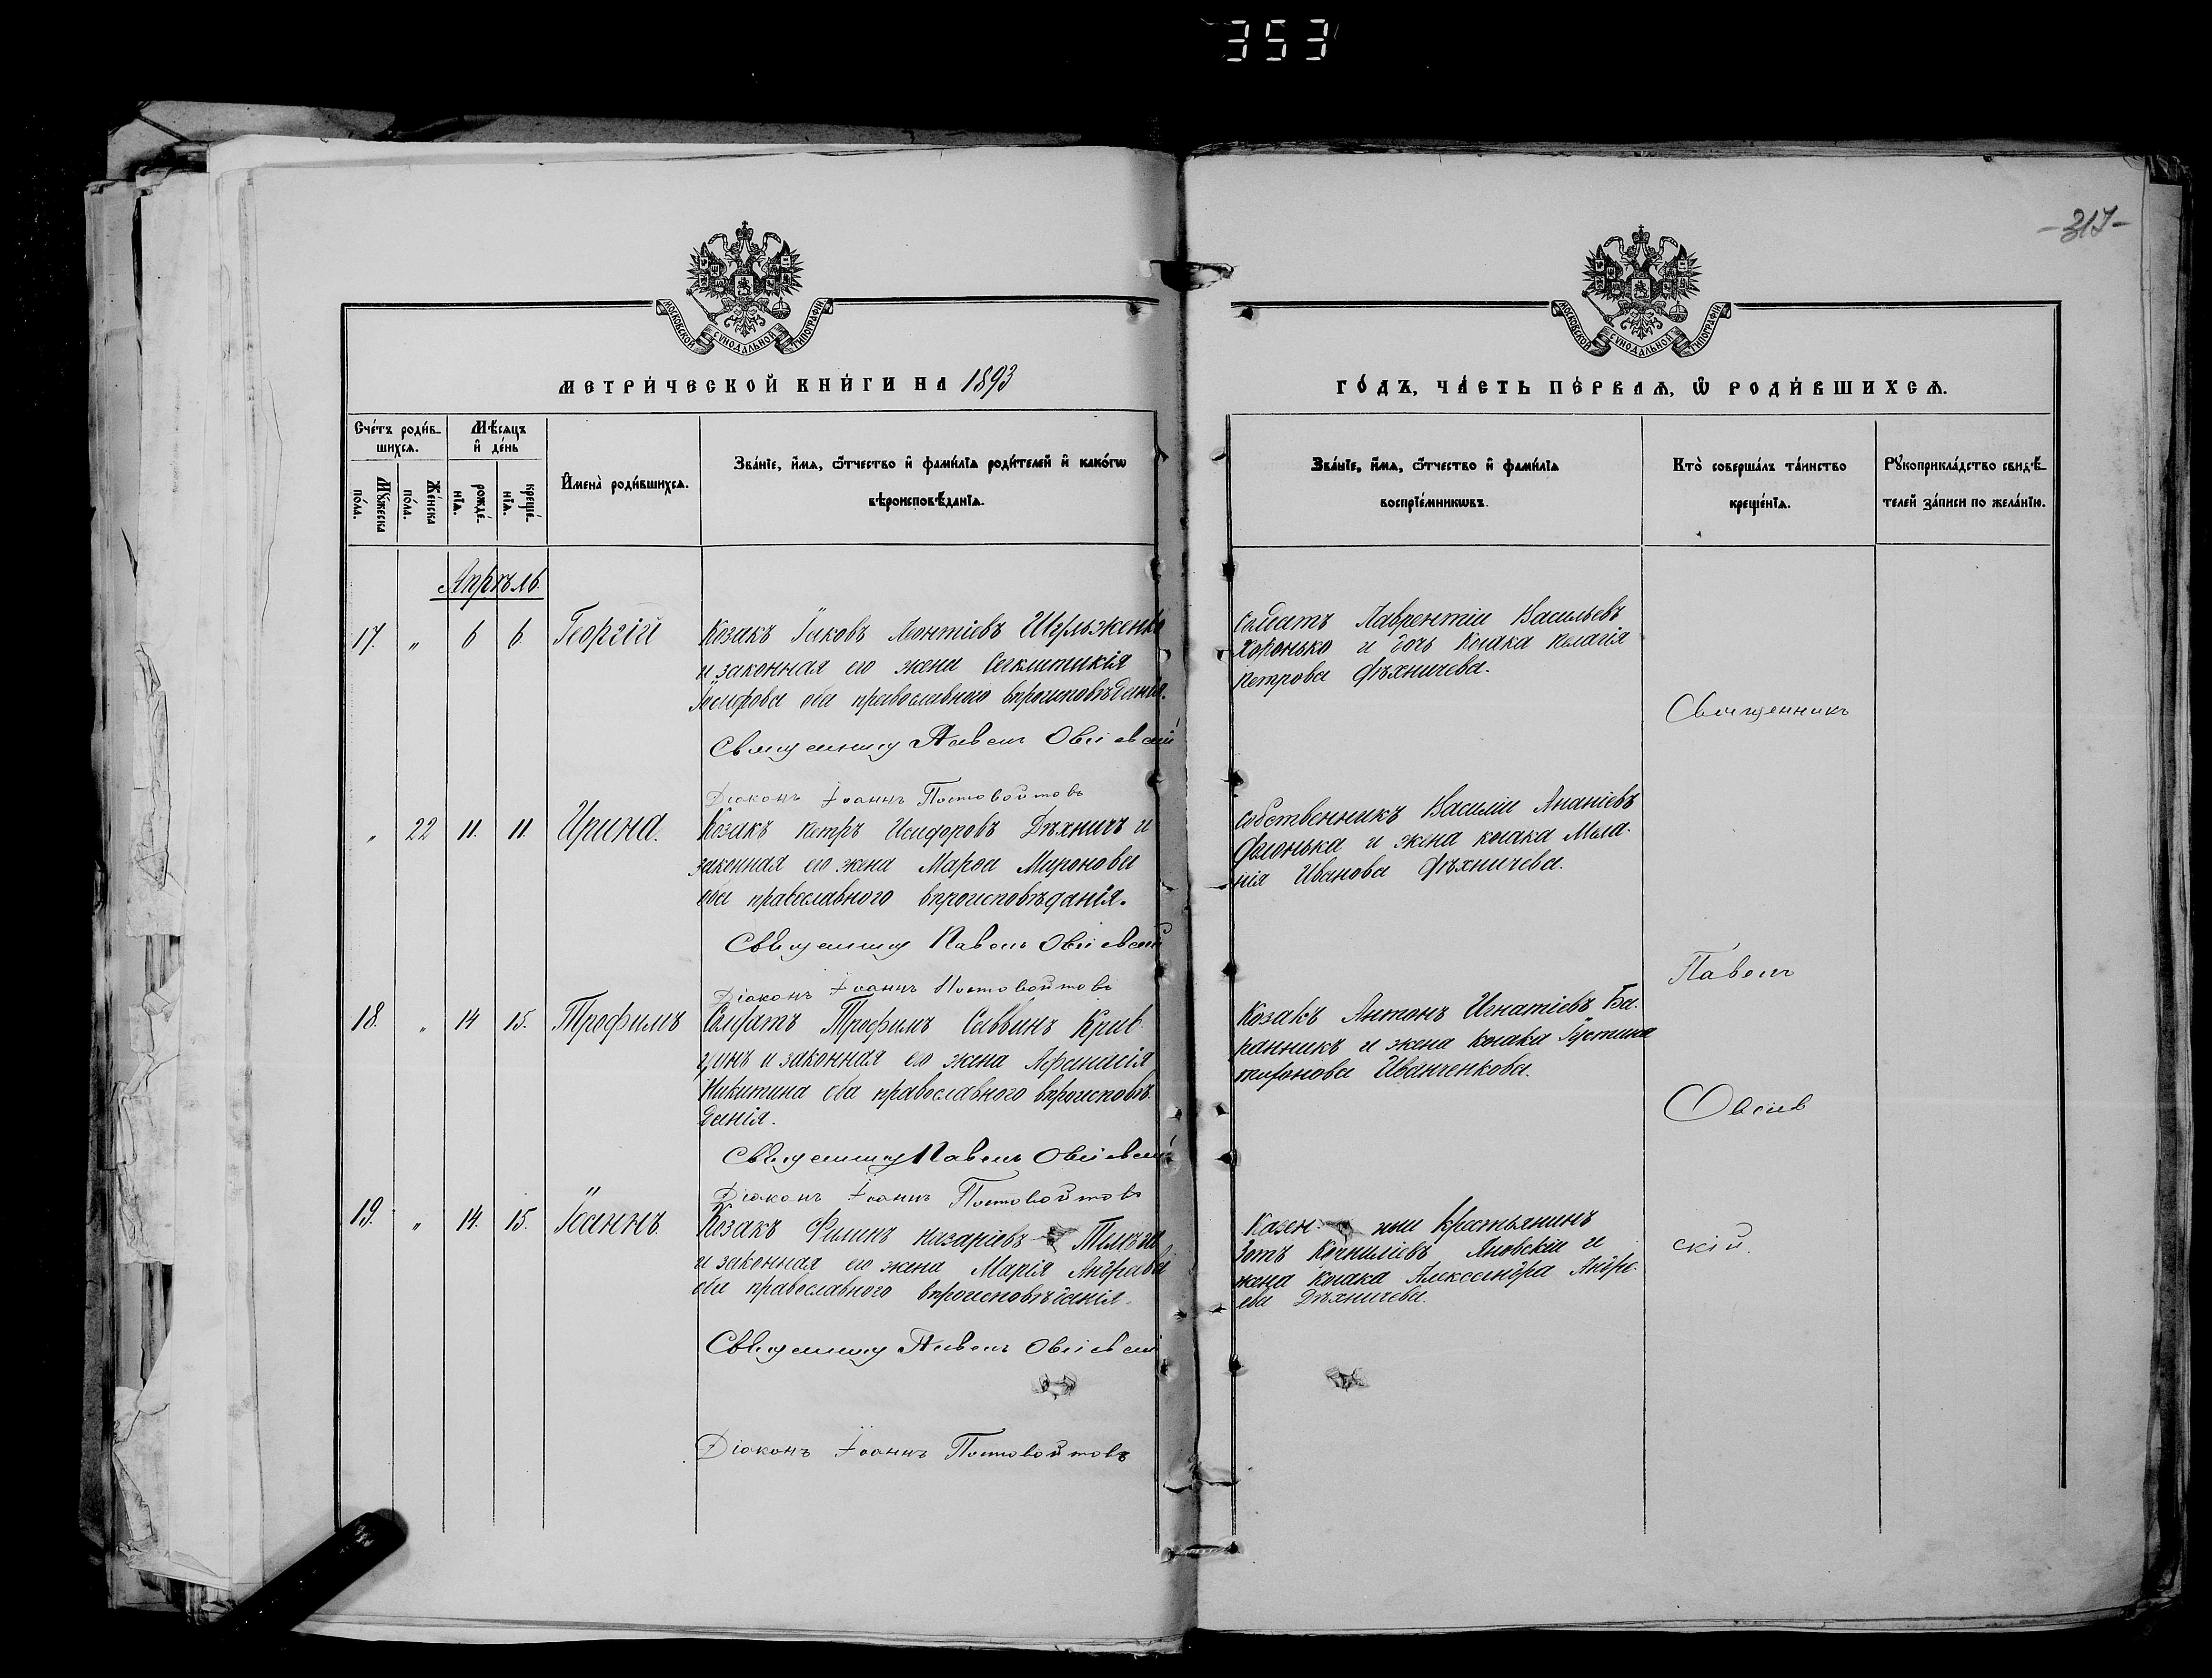 353
-317-
МОСКОВСКОЙ СѴНОДАЛЬНОЙ ТИПОГРАФІИ
МОСКОВСКОЙ СѴНОДАЛЬНОЙ ТИПОГРАФІИ
МЕТРИ́ЧЕСКОЙ КНИ́ГИ НА 1893
ГО́ДЪ, ЧА́СТЬ ПЕ́РВАѦ, Ѡ҆ РОДИ́ВШИХСѦ.
Сче́тъ роди́в-
шихсѧ.
Мꙋ́жеска
по́ла.
Же́нска
по́ла.
Мѣ́сѧцъ
и҆ де́нь
рожде́-
нїѧ.
креще́-
нїѧ.
И҆мена̀ роди́вшихсѧ.
Зва́нїе, и҆́мѧ, ѻ҆́тчество и҆ фами́лїѧ роди́телей и҆ како́гѡ
вѣроисповѣ́данїѧ.
Зва́нїе, и҆́мѧ, ѻ҆́тчество и҆ фами́лїѧ
воспрїе́мникѡвъ.
Кто̀ соверша́лъ та́инство
креще́нїѧ.
Рꙋкоприкла́дство свидѣ́-
телей за́писи по жела́нїю.
Апрѣль
17. " 6 6 Георгій
Козакъ Іаковъ Леонтіевъ
и законная его жена Сигклитикія
Іосифова оба православнаго вѣроисповѣданія.
Священникъ Павелъ Овсіевскій
Діаконъ Іоаннъ Постовойтовъ
Солдатъ Лаврентій Васильевъ
Хоронько и дочь козака Пелагія
Петрова Дѣхничева.
" 22 11. 11. Ирина.
Козакъ Петръ Исидоровъ Дѣхничъ и
законная его жена Марѳа Миронова
оба православнаго вѣроисповѣданія.
Священникъ Павелъ Овсіевскій
Діаконъ Іоаннъ Постовойтовъ
Собственникъ Василій Ананіевъ
и жена козака Мела-
нія Иванова Дѣхничева.
18. " 14 15. Трофимъ
Солдатъ Трофимъ Саввинъ Крив-
и законная его жена Аѳанасія
Никитина оба православнаго вѣроисповѣ-
данія.
Священникъ Павелъ Овсіевскій
Діаконъ Іоаннъ Постовойтовъ
Козакъ Антонъ Игнатіевъ Ба-
ранникъ и жена козака Іустина
Иванченкова.
19. " 14. 15. Іоаннъ.
Козакъ Филипъ Назаріевъ
и законная его жена Марія Андреева
оба православнаго вѣроисповѣданія.
Священникъ Павелъ Овсіевскій
Діаконъ Іоаннъ Постовойтовъ
Казен- ный крестьянинъ
Зотъ Корниліевъ Яновскій и
жена козака Александра Андре-
ева Дѣхничева.
Священникъ
Павелъ
Овсіев
скій.